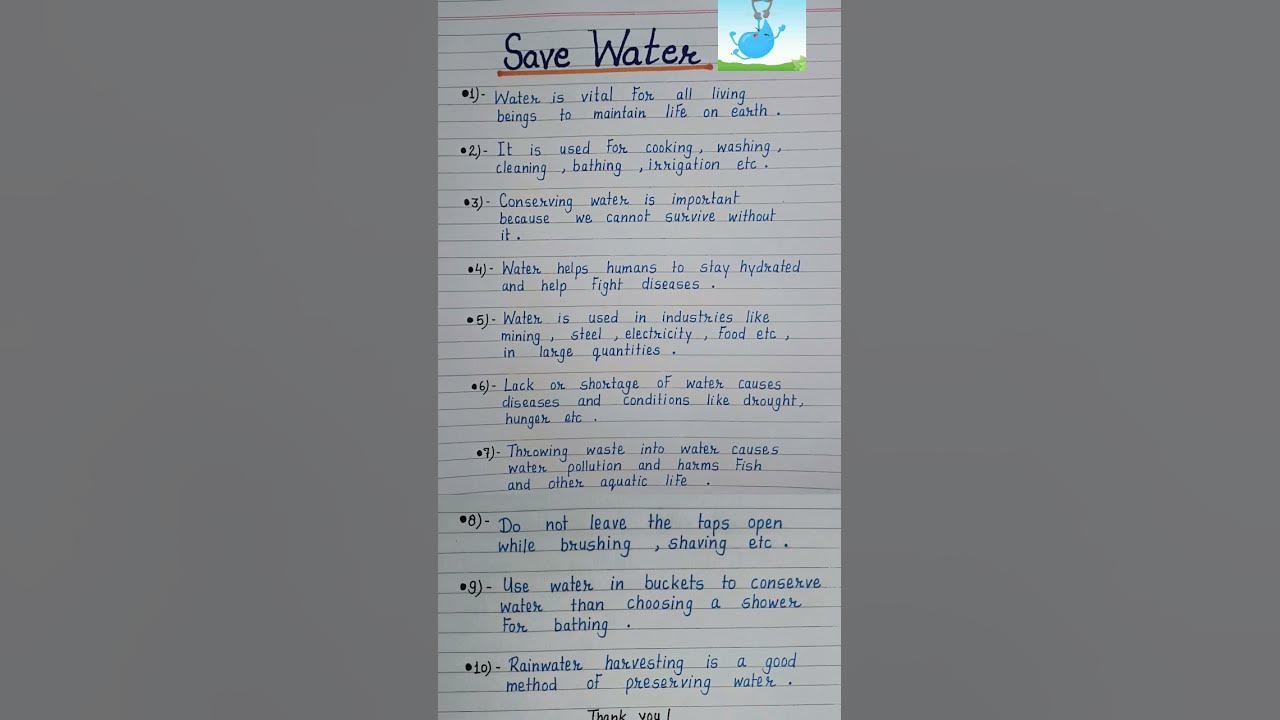 Save Water
•1)- Water is vital For all living
beings to maintain life on earth .
•2)- It is used For cooking , washing ,
cleaning , bathing , irrigation etc .
•3)- Conserving water is important
because we cannot survive without
it .
•4)- Water helps humans to stay hydrated
and help Fight diseases .
•5)- Water is used in industries like
mining , steel , electricity , Food etc ,
in large quantities .
•6)- Lack or shortage of water causes
diseases and conditions like drought,
hunger etc .
•7)- Throwing waste into water causes
water pollution and harms Fish
and other aquatic life .
•8)- Do not leave the taps open
while brushing , shaving etc .
•9)- Use water in buckets to conserve
water than choosing a shower
For bathing .
•10)- Rainwater harvesting is a good
method of preserving water .
Thank you !